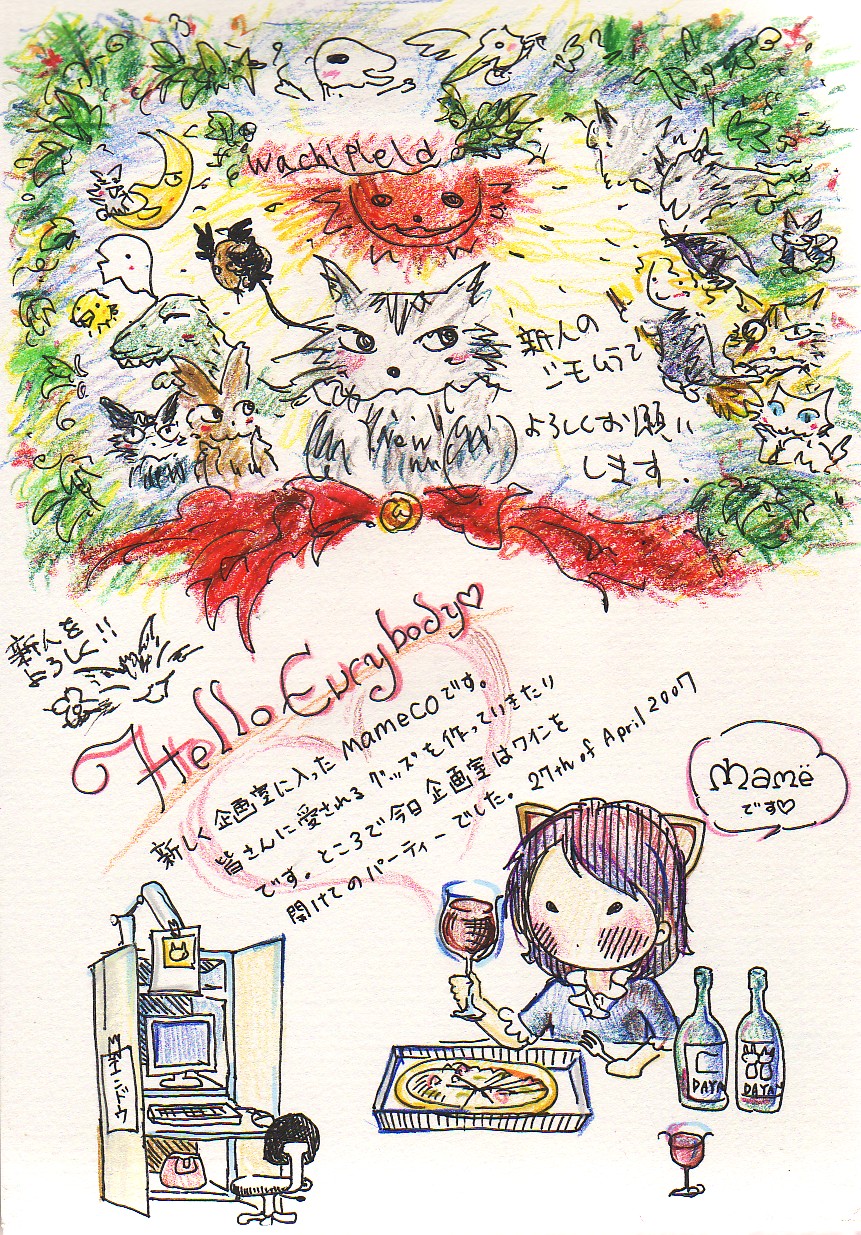 wachifield
新人の
シモムラで
よろしくお願い
します.
New
新人を
よろしく!!
Hello Eurybody♡
新しく企画室に入ったmamecoです。
皆さんに愛されるグッズを作っていきたり
です。ところで今日企画室はワインを
開けてのパーティーでした。27th of April 2007
mamë
です♡
DAYAN
DAYAN